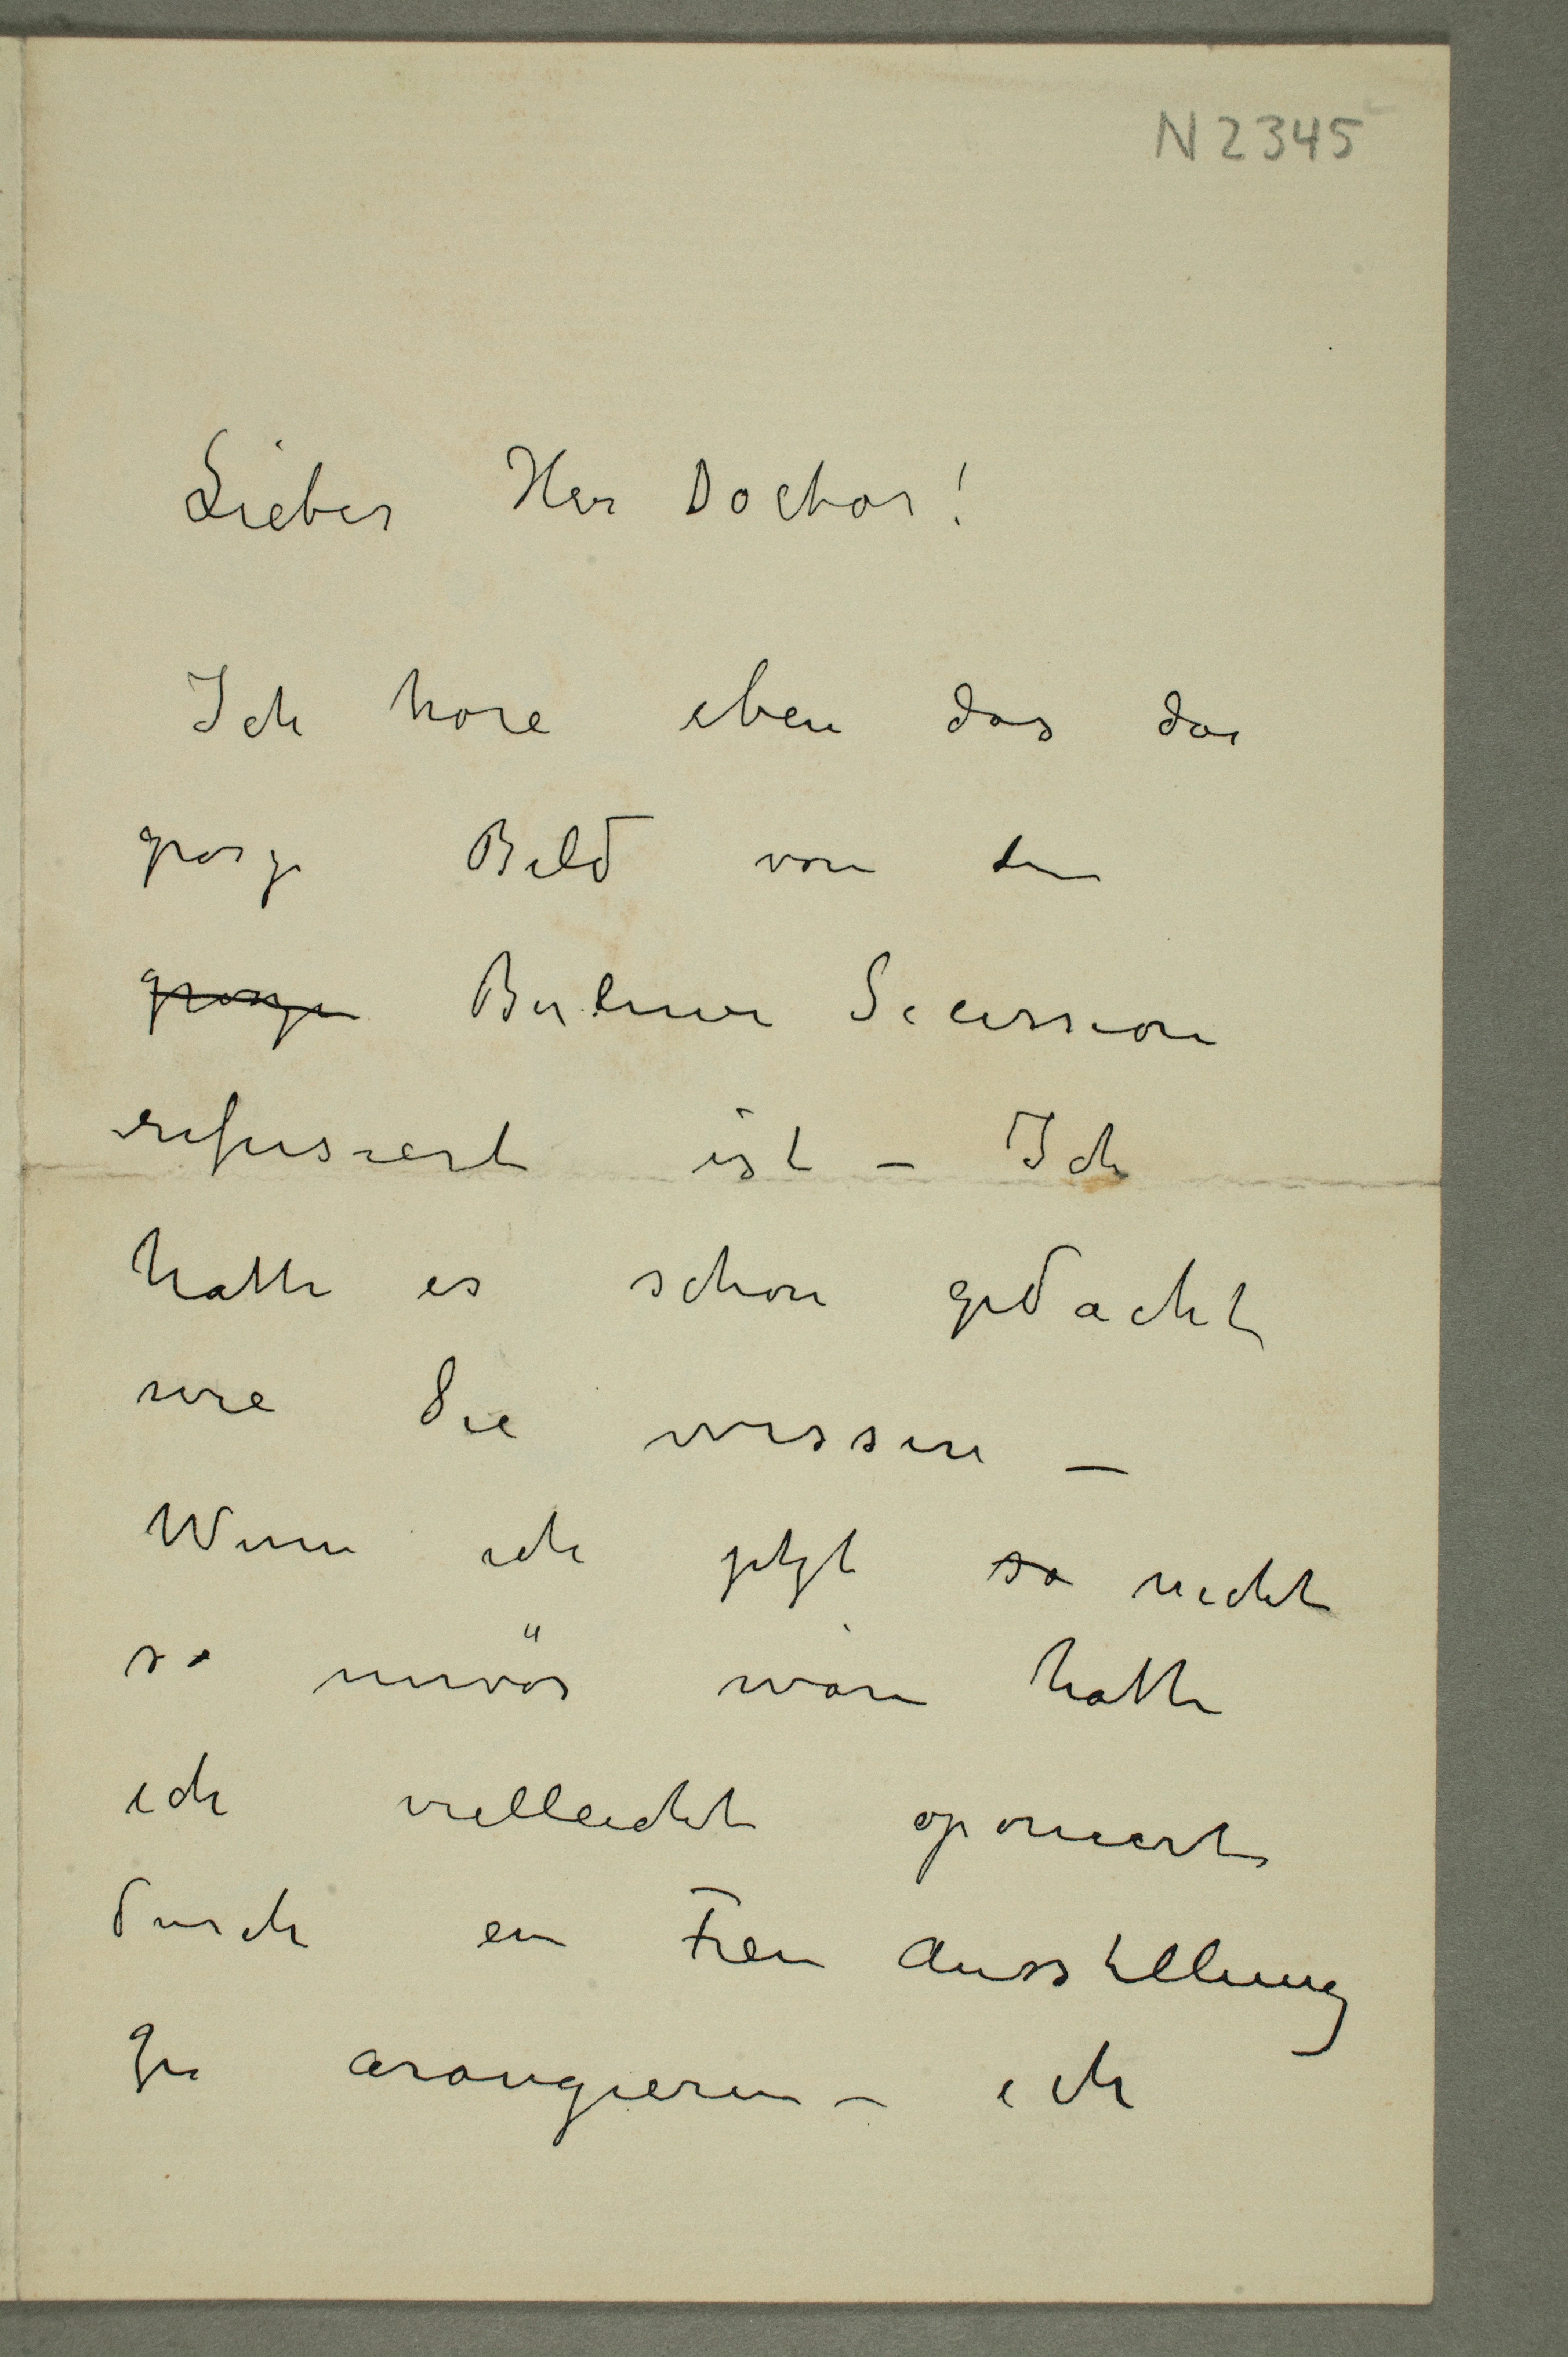 N 2345
Lieber Herr Doctor!
Ich hore eben das das
grosze Bild von den
groszen Berliner Secession
refusiert ist – Ich
hatte es schon gedacht
wie Sie wissen –
Wenn ich jetzt so nicht
so nervös wäre hatte
ich vielleicht oponiert
durch ein Freu Ausstellung
zu arangieren – ich